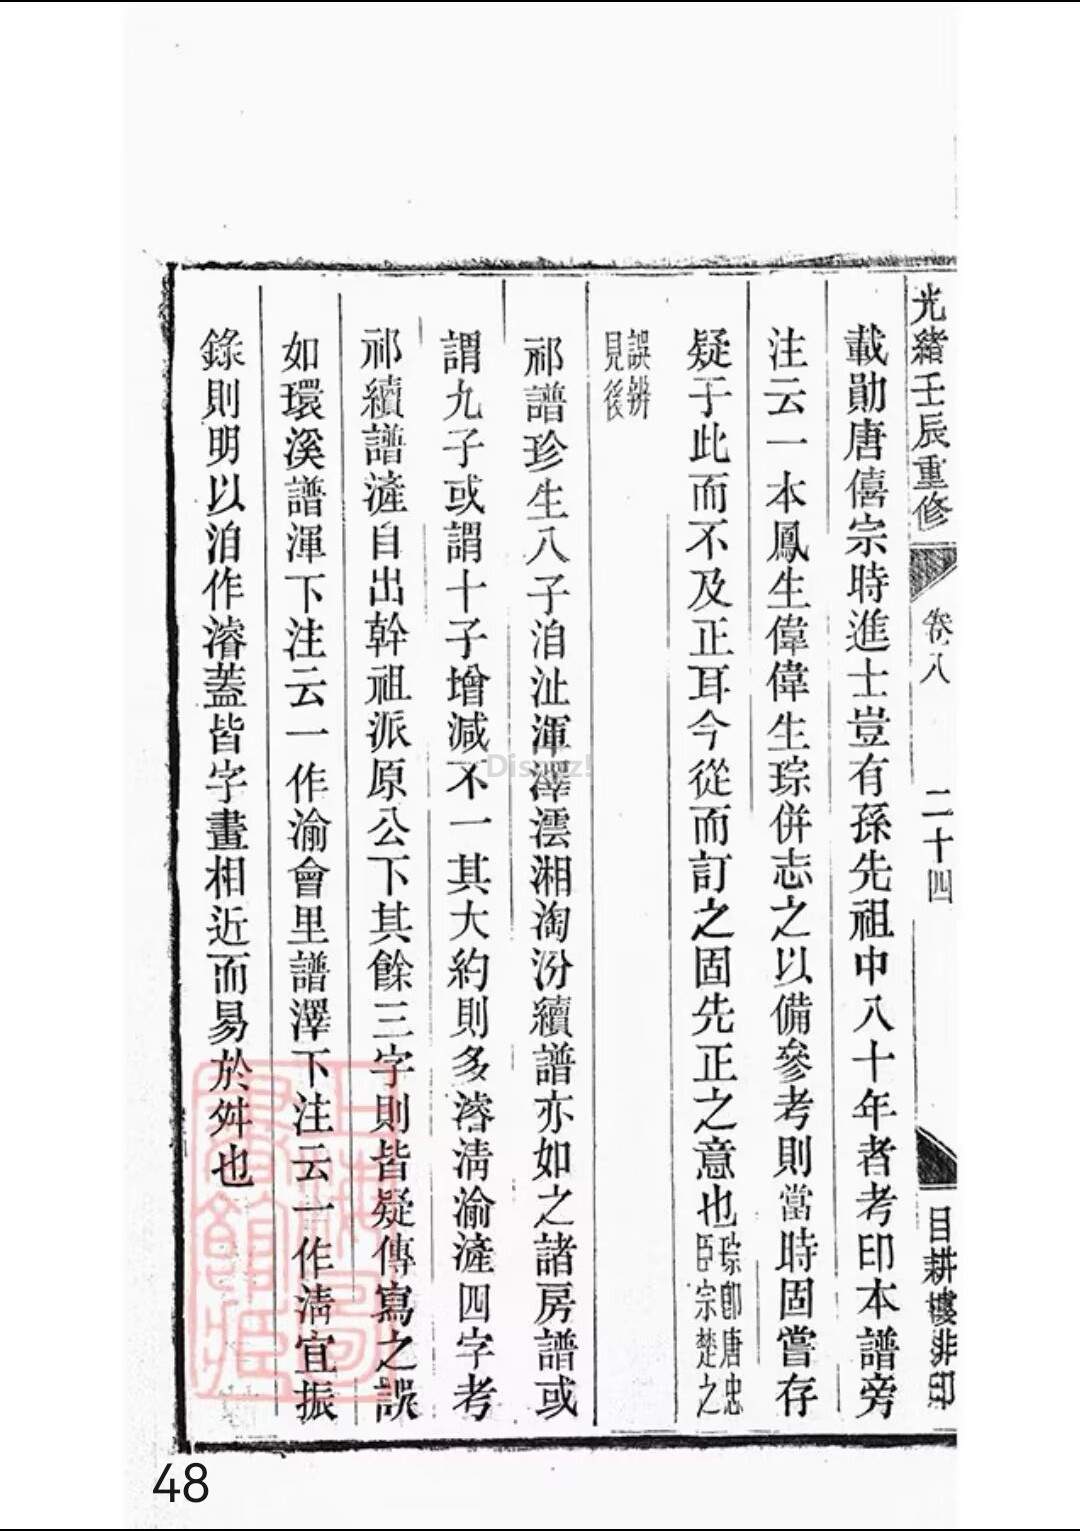 光緒壬辰重修
卷八
二十四
目耕樓排印
載勛唐僖宗時進士豈有孫先祖中八十年者考印本譜旁
注云一本鳳生偉偉生琮併志之以備參考則當時固嘗存
疑于此而不及正耳今從而訂之固先正之意也琮卽唐忠
臣宗楚之
誤辨
見後
祁譜珍生八子洎沚渾澤澐湘淘汾續譜亦如之諸房譜或
謂九子或謂十子增減不一其大約則多濬淸渝滻四字考
祁續譜滻自出幹祖派原公下其餘三字則皆疑傳寫之誤
如環溪譜渾下注云一作渝會里譜澤下注云一作淸宜振
錄則明以洎作濬蓋皆字畫相近而易於舛也
上海圖書館藏
Discuz!
48